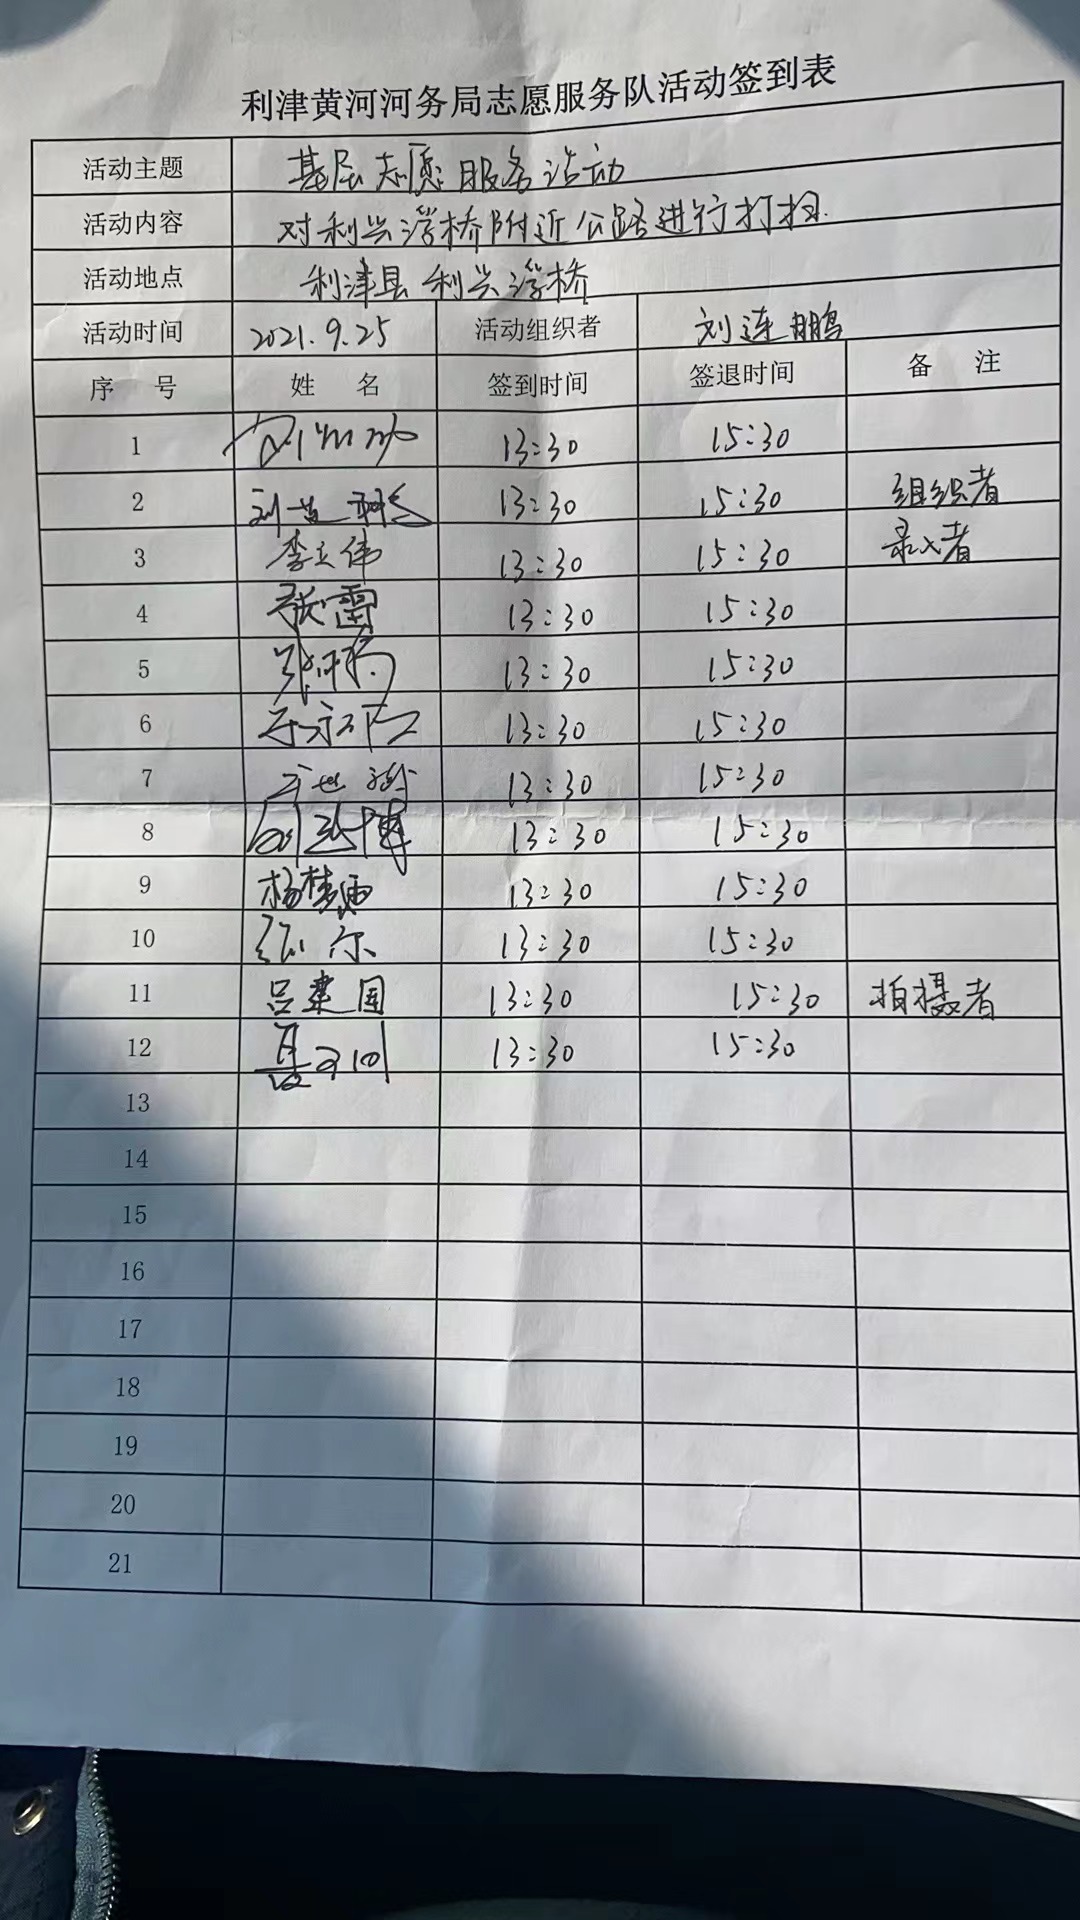 利津黄河河务局志愿服务队活动签到表
活动主题 基层志愿服务活动
活动内容 对利兴浮桥附近公路进行打扫.
活动地点 利津县利兴浮桥
活动时间 2021.9.25 活动组织者 刘连鹏
序 号 姓 名 签到时间 签退时间 备 注
1 13:30 15:30
2 刘连鹏 13:30 15:30 组织者
3 李立伟 13:30 15:30 录入者
4 张雷 13:30 15:30
5 13:30 15:30
6 13:30 15:30
7 13:30 15:30
8 13:30 15:30
9 杨梦迪 13:30 15:30
10 13:30 15:30
11 吕建国 13:30 15:30 拍摄者
12 13:30 15:30
13
14
15
16
17
18
19
20
21